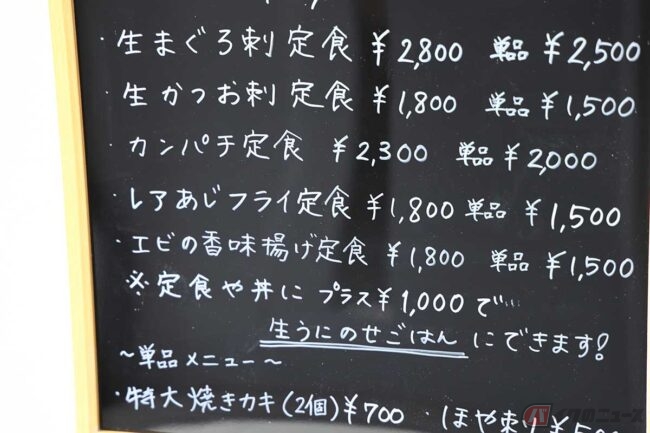 ・生まぐろ刺定食 ¥2,800 単品 ¥2,500
・生かつお刺定食 ¥1,800 単品 ¥1,500
・カンパチ定食 ¥2,300 単品 ¥2,000
・レアあじフライ定食 ¥1,800 単品 ¥1,500
・エビの香味揚げ定食 ¥1,800 単品 ¥1,500
※定食や丼に プラス¥1,000で…
生うにのせごはん にできます!
〜単品メニュー〜
・特大焼きカキ(2個)¥700 ・ほや刺し¥5
バイクのニュース